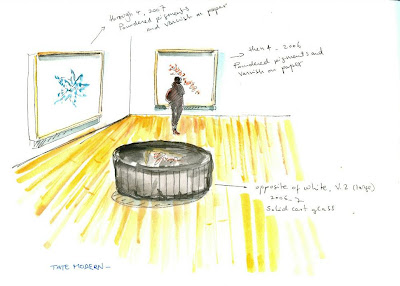 through 4, 2007
Powdered pigments
and varnish on paper
then 4 - 2006
Powdered pigments and
varnish on paper
opposite of white, V.2 (large)
2006-7
Solid cast glass
TATE MODERN -